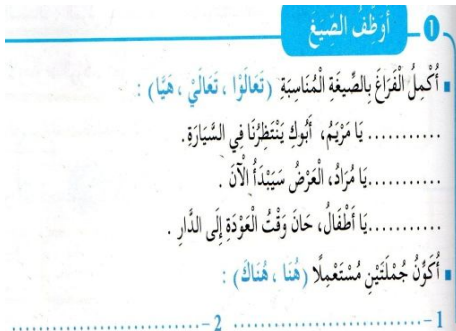 1 أُوَظِّفُ الصِّيَغَ
■ أُكْمِلُ الْفَرَاغَ بِالصِّيغَةِ الْمُنَاسِبَةِ (تَعَالَوْا ، تَعَالَيْ ، هَيَّا) :
........... يَا مَرْيَمُ، أَبُوكِ يَنْتَظِرُنَا فِي السَّيَارَةِ.
...........يَا مُرَادُ، الْعَرْضُ سَيَبْدَأُ الْآنَ .
...........يَا أَطْفَالُ، حَانَ وَقْتُ الْعَوْدَةِ إِلَى الدَّارِ .
■ أُكَوِّنُ جُمْلَتَيْنِ مُسْتَعْمِلًا (هُنَا ، هُنَاكَ) :
1-............................ 2-............................